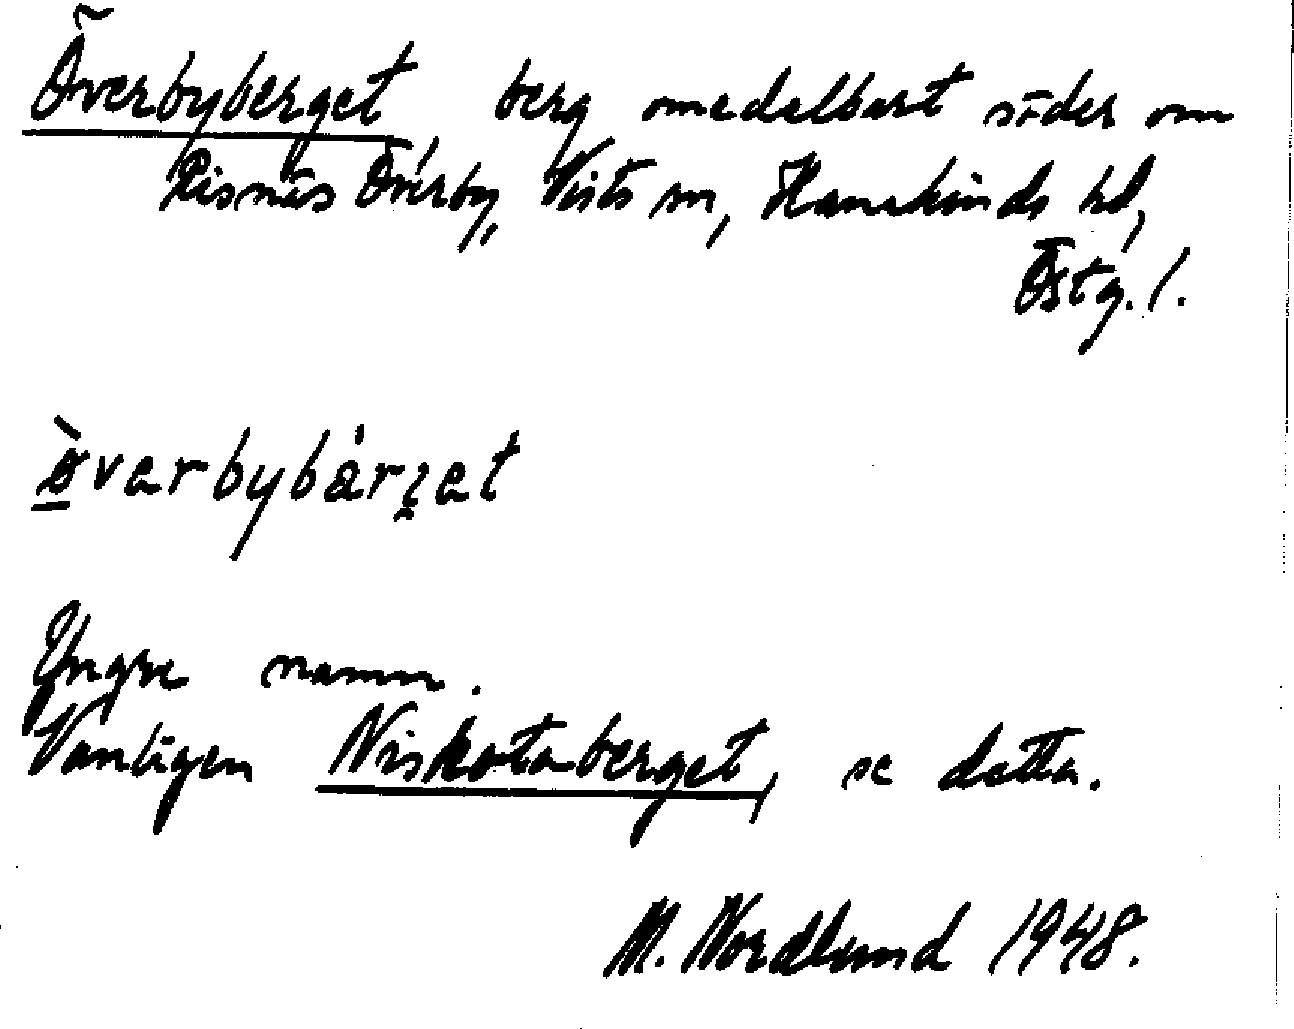 Överbyberget, berg omedelbart söder om
Risnäs Överby, Vists sn, Hanekinds hd,
Östg. l.
ö̀verbybärget
Yngre namn.
Vanligen Niskotaberget, se detta.
M. Nordlund 1948.